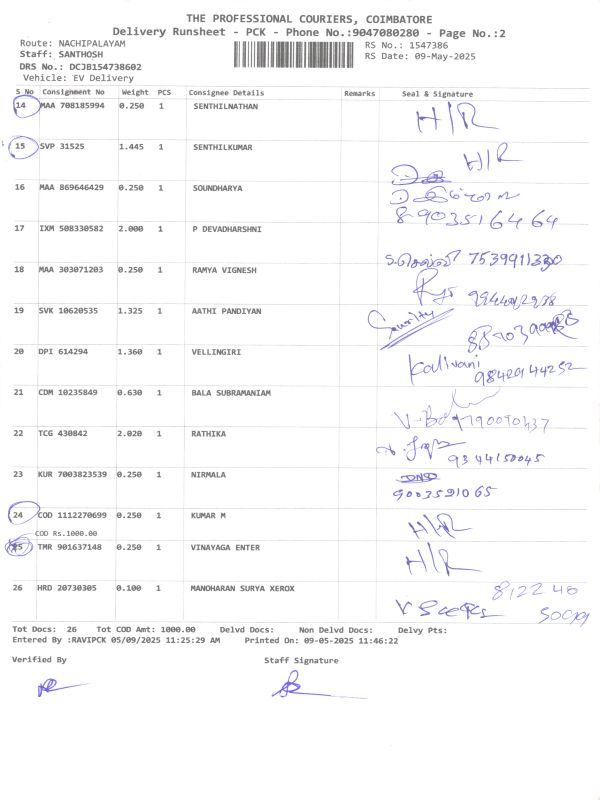 THE PROFESSIONAL COURIERS, COIMBATORE
Delivery Runsheet - PCK - Phone No.:9047080280 - Page No.:2
Route: NACHIPALAYAM RS No.: 1547386
Staff: SANTHOSH RS Date: 09-May-2025
DRS No.: DCJB154738602
Vehicle: EV Delivery
S No Consignment No Weight PCS Consignee Details Remarks Seal & Signature
14 MAA 708185994 0.250 1 SENTHILNATHAN H/R
15 SVP 31525 1.445 1 SENTHILKUMAR H/R
16 MAA 869646429 0.250 1 SOUNDHARYA
8-903516464
17 IXM 508330582 2.000 1 P DEVADHARSHNI
S.செல்வி 7539911330
18 MAA 303071203 0.250 1 RAMYA VIGNESH
19 SVK 10620535 1.325 1 AATHI PANDIYAN Security
20 DPI 614294 1.360 1 VELLINGIRI Kalivani
21 CDM 10235849 0.630 1 BALA SUBRAMANIAM
22 TCG 430842 2.020 1 RATHIKA
9344150045
23 KUR 7003823539 0.250 1 NIRMALA
9003591065
24 COD 1112270699 0.250 1 KUMAR M H/R
COD Rs.1000.00
25 TMR 901637148 0.250 1 VINAYAGA ENTER H/R
26 HRD 20730305 0.100 1 MANOHARAN SURYA XEROX 812240
Tot Docs: 26 Tot COD Amt: 1000.00 Delvd Docs: Non Delvd Docs: Delvy Pts:
Entered By :RAVIPCK 05/09/2025 11:25:29 AM Printed On: 09-05-2025 11:46:22
Verified By Staff Signature